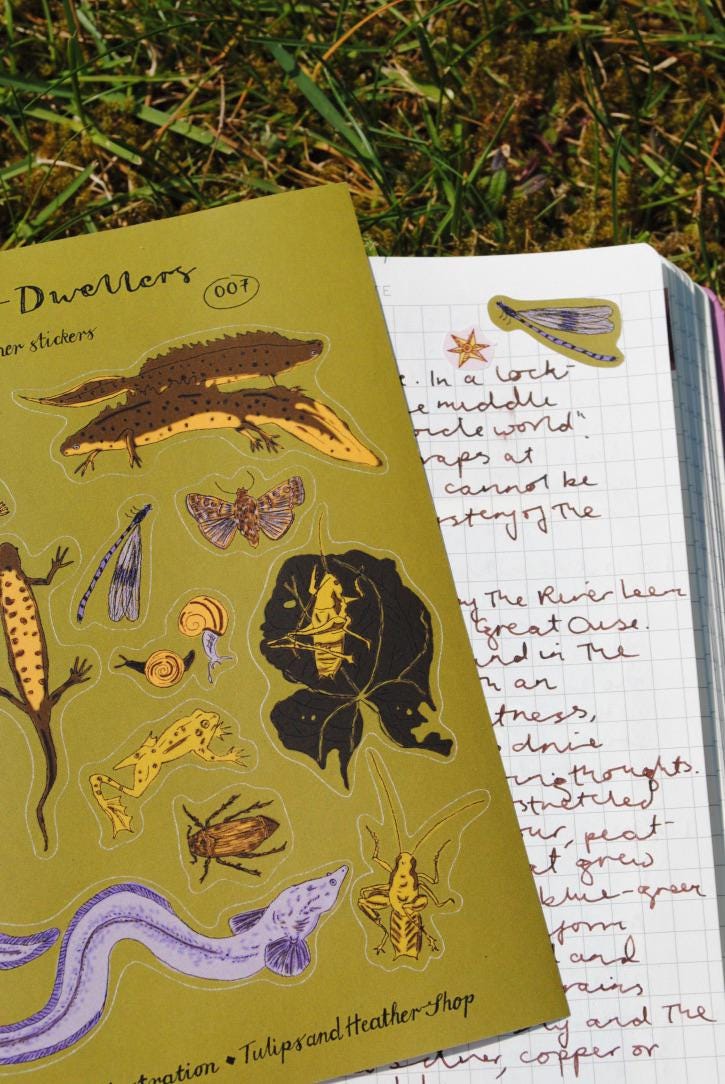 -Dwellers
007
her stickers
stration ◆ Tulips and Heather Shop
TE
. In a lock-
middle
world"
raps at
cannot be
ystery of The
by The River Leen
Great Ouse.
and in The
an
tness,
thoughts.
stretched
our, peat
grew
blue-green
form
and
rains
and The
copper or